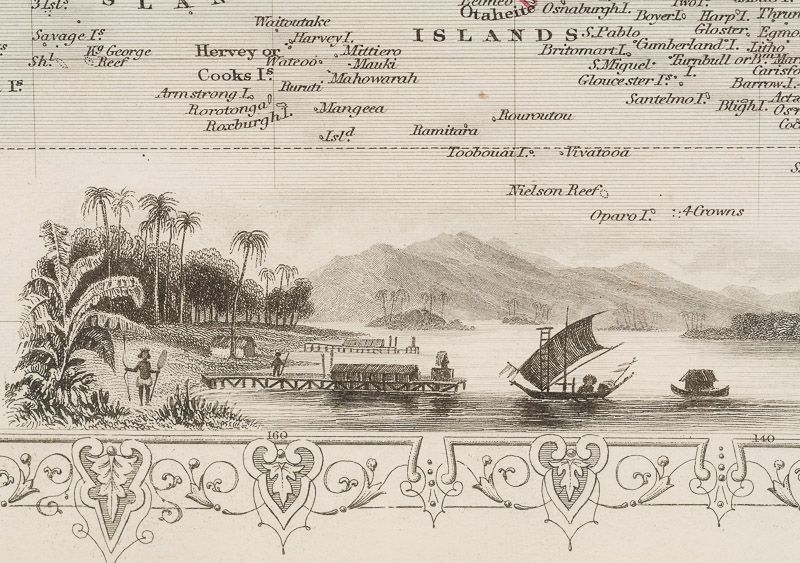 3 Isls.
SLAN
Savage Is.
Kg. George
Reef
Shl.
Waitoutake
Harvey I.
Hervey or
Cooks Is.
Mittiero
Wateoo
Mauki
Mahowarah
Armstrong I.
Ruruti
Rorotonga I.
Roxburgh I.
Mangeea
Isld.
Otaheite
ISLANDS
Osnaburgh I.
Boyer I.
Harp I.
S. Pablo
Gloster
Britomart I.
Cumberland I.
Litho
S. Miguel
Turnbull or
Gloucester Is.
I.
Barrow I.
Santelmo I.
Bligh I.
Ramitara
Rouroutou
Toobouai I.
Vivatooa
Nielson Reef
Oparo I.
4 Crowns
160
140